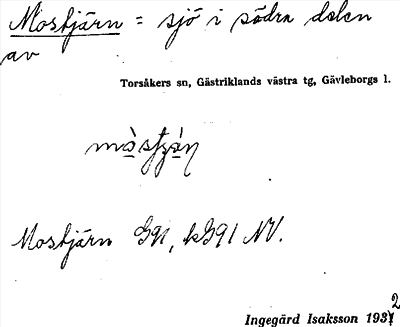 Mostjärn = sjö i södra delen
av
Torsåkers sn, Gästriklands västra tg, Gävleborgs l.
Mostjärn G91, kG91 NV.
Ingegärd Isaksson 1932